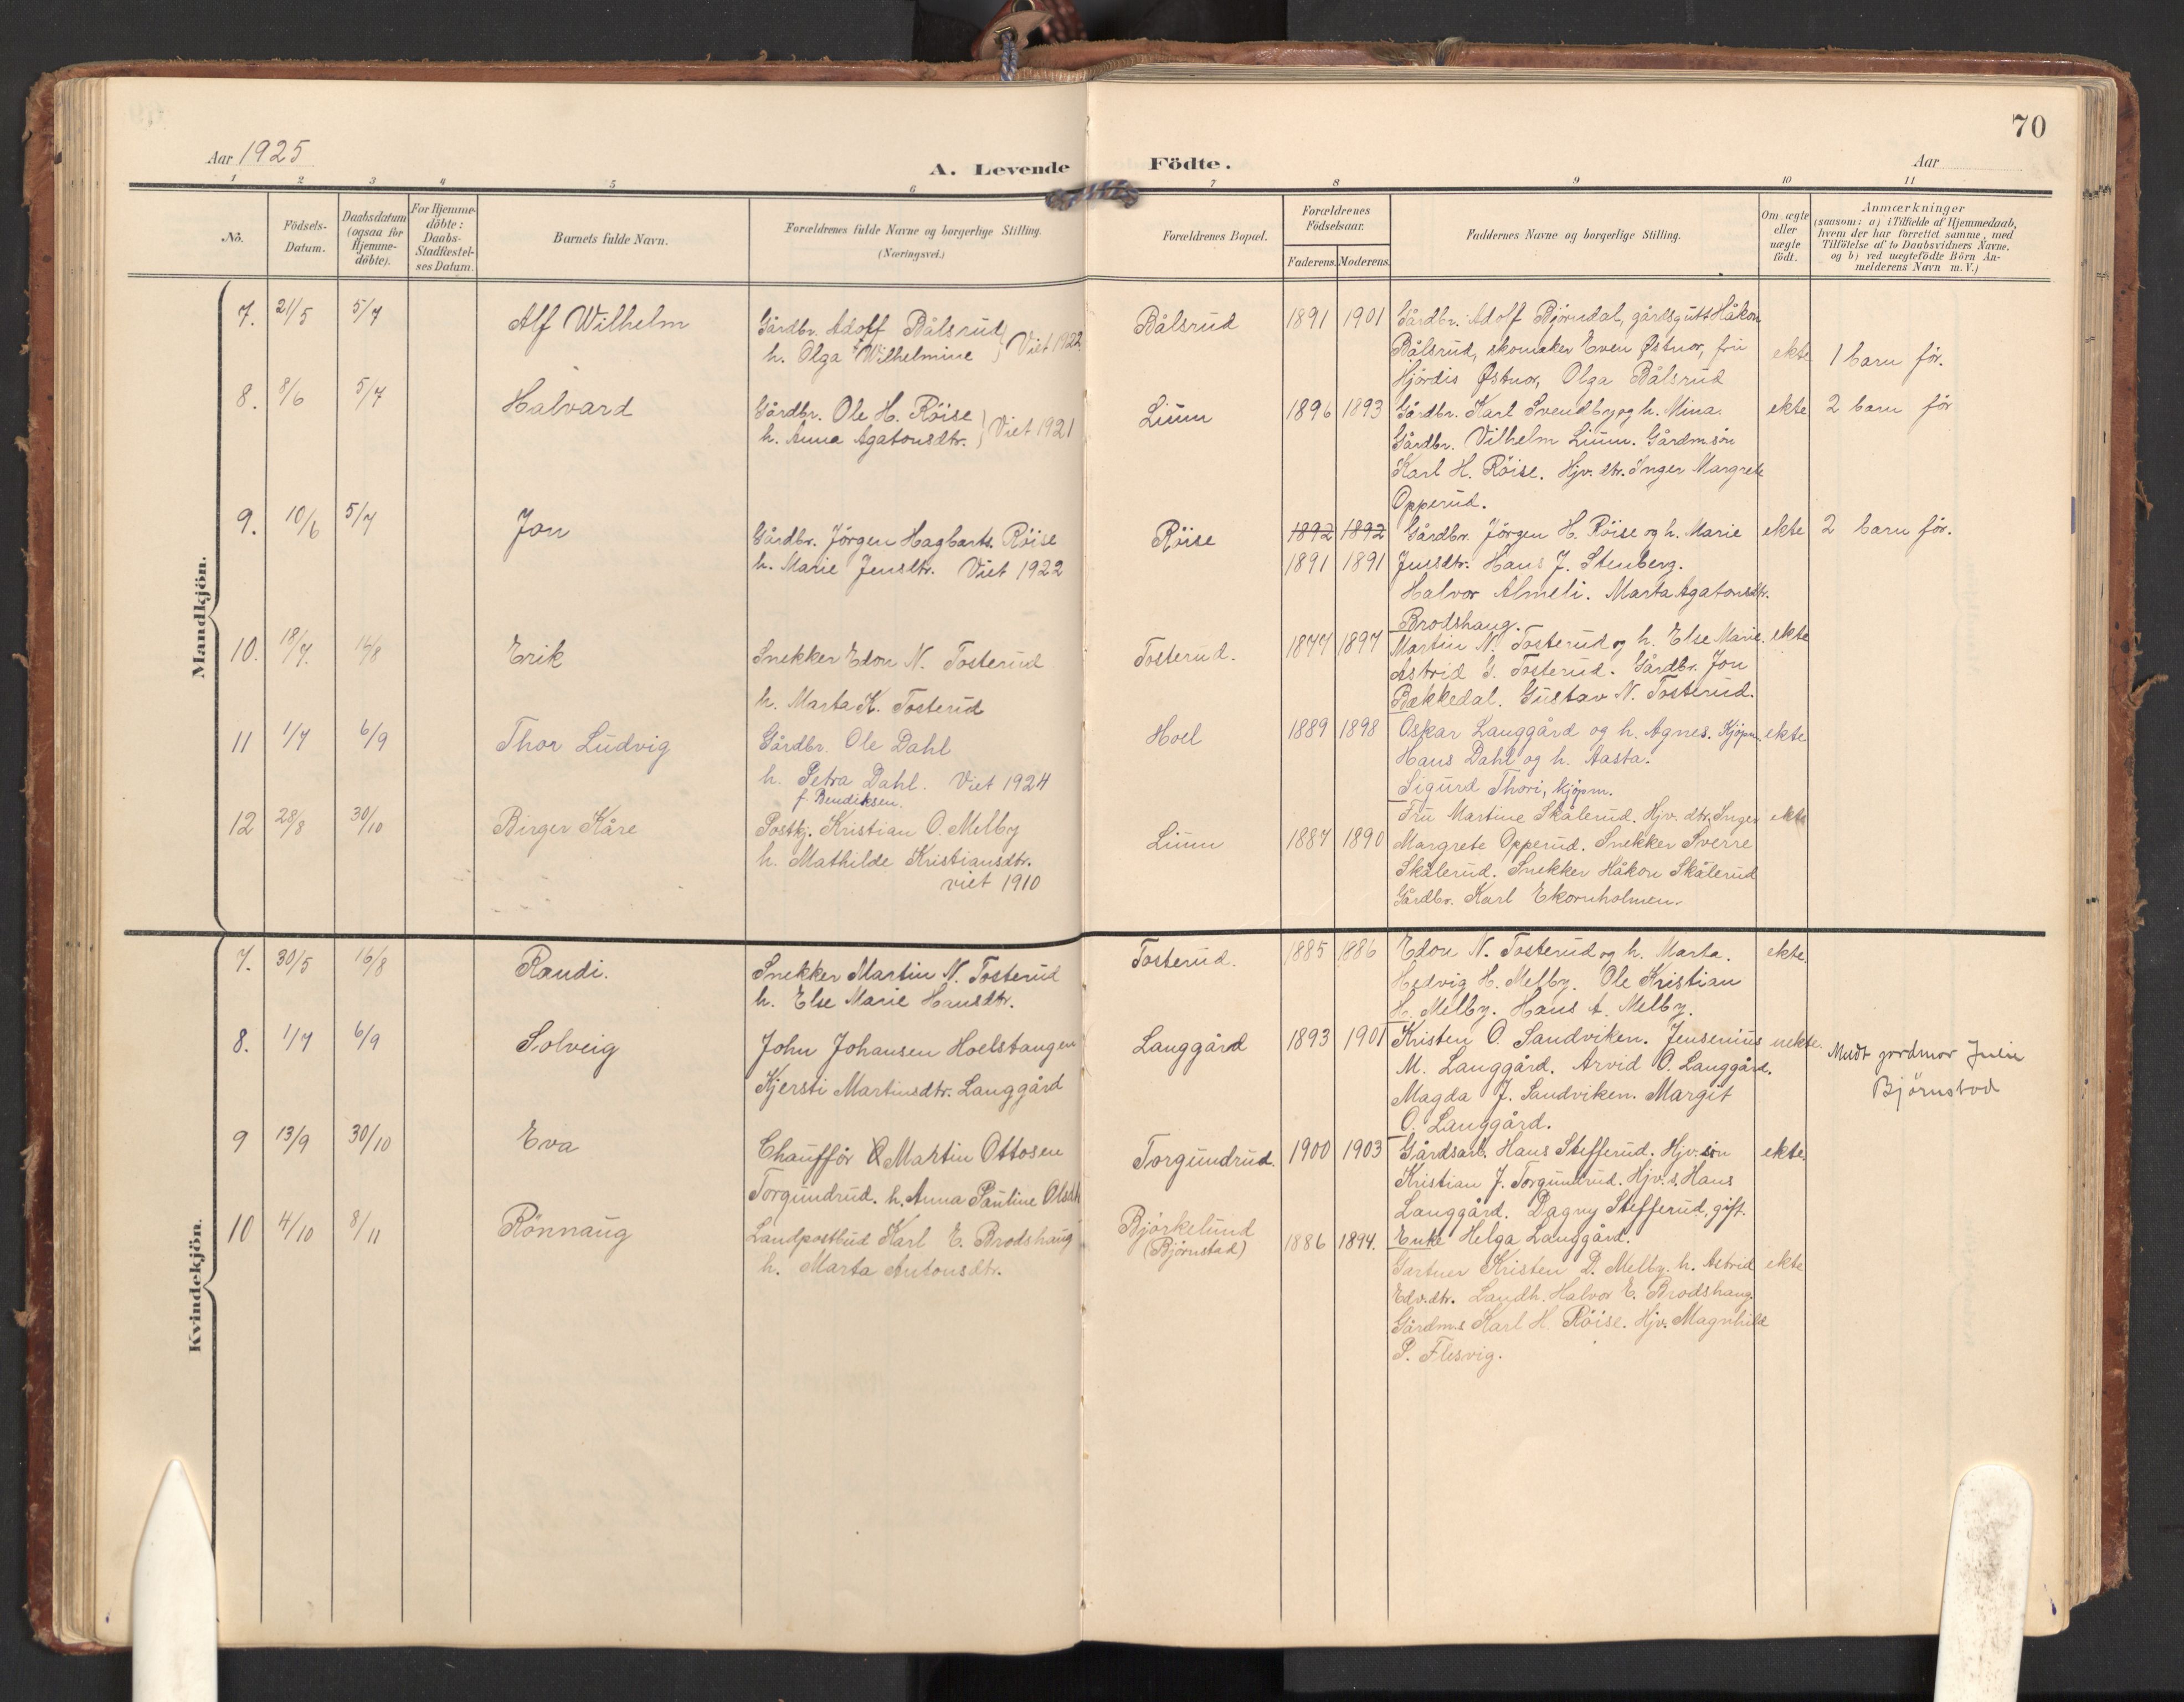 70
Aar 1925
A. Levende Födte.
Aar
1 2 3 4 5 6 7 8 9 10 11
No.
Födsels-
Datum.
Daabsdatum
(ogsaa for
Hjemme-
döbte).
For Hjemme-
döbte:
Daabs-
Stadfæstel-
ses Datum.
Barnets fulde Navn.
Forældrenes fulde Navne og borgerlige Stilling.
(Næringsvei.)
Forældrenes Bopæl.
Forældrenes
Födselsaar.
Faderens. Moderens.
Faddernes Navne og borgerlige Stilling.
Om ægte
eller
uægte
födt.
Anmærkninger
(saasom: a) i Tilfælde af Hjemmedaab,
hvem der har forrettet samme, med
Tilföielse af to Daabsvidners Navne.
og b) ved uægtefödte Börn An-
melderens Navn m. V.)
Mandkjön.
7. 21/5 5/7 Alf Wilhelm
Gårdbr. Adolf Bålsrud
h. Olga Wilhelmine } Viet 1922
Bålsrud 1891 1901
Gårdbr. Adolf Bjørndal, gårdsgutt Håkon
Bålsrud, skomaker Even Østnor, fru
Hjördis Østnor, Olga Bålsrud
ekte 1 barn för.
8. 8/6 5/7 Halvard
Gårdbr. Ole H. Röise
h. Anna Agatonsdtr. } Viet 1921
Lium 1896 1893
Gårdbr. Karl Svendby og h. Mina.
Gårdbr. Vilhelm Lium. Gårdm.sön
Karl H. Röise. Hjv. dtr. Inger Margrete
Opperud.
ekte 2 barn för
9. 10/6 5/7 Jon
Gårdbr. Jörgen Hagbarts. Röise
h. Marie Jensdtr. Viet 1922
Röise 1892 1892
1891 1891
Gårdbr. Jörgen H. Röise og h. Marie
Jensdtr. Hans J. Stenberg.
Halvor Almeli. Marta Agatonsdtr.
Brodshaug.
ekte 2 barn för.
10. 18/7. 16/8 Erik
Snekker Edon N. Tosterud
h. Marta K. Tosterud
Tosterud. 1877 1897
Martin N. Tosterud og h. Else Marie.
Astrid G. Tosterud. Gårdbr. Jon
Bækkedal. Gustav N. Tosterud.
ekte
11 1/7 6/9 Thor Ludvig
Gårdbr. Ole Dahl
h. Petra Dahl. Viet 1924
f. Bendiksen.
Hoel 1889 1898
Oskar Langgård og h. Agnes. Kjöpm.
Hans Dahl og h. Aasta.
Sigurd Thori, kjöpm.
ekte
12 28/8 30/10 Birger Kåre
Postkj. Kristian O. Melby
h. Mathilde Kristiansdtr.
viet 1910
Lium 1887 1890
Fru Martine Skålerud. Hjv. dtr. Inger
Margrete Opperud. Snekker Sverre
Skålerud. Snekker Håkon Skålerud
Gårdbr. Karl Ekornholmen.
ekte
Kvindekjön.
7. 30/5 16/8 Randi.
Snekker Martin N. Tosterud
h. Else Marie Hansdtr.
Tosterud. 1885 1886
Edon N. Tosterud og h. Marta.
Hedvig H. Melby. Ole Kristian
H. Melby. Hans A. Melby.
ekte.
8. 1/7 6/9 Solveig
John Johansen Hoelstangen
Kjersti Martinsdtr. Langgård
Langgård 1893 1901
Kristen O. Sandviken. Jensenius
M. Langgård. Arvid O. Langgård.
Magda J. Sandviken. Margit
O. Langgård.
uekte.
jordmor Julie
Björnstad
9 13/9 30/10 Eva
Chaufför Martin Ottosen
Torgundrud. h. Anna Pauline Olsdtr
Torgundrud. 1900 1903
Gårdsarb. Hans Stefferud. Hjv. sön
Kristian J. Torgundrud. Hjv. s. Hans
Langgård. Dagny Stefferud, gift.
Enke Helga Langgård.
ekte.
10 4/10 8/11 Rönnaug
Landpostbud Karl E. Brodshaug
h. Marta Antonsdtr.
Björkelund
(Björnstad)
1886 1894.
Gartner Kristen D. Melby. h. Astrid
Edv.dtr. Landh. Halvor E. Brodshaug.
Gårdm.s Karl H. Röise. Hjv. Magnhild
P. Flesvig.
ekte